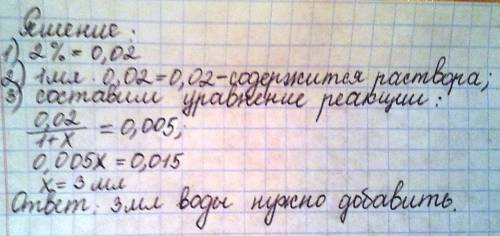 Решение:
1) 2% = 0,02
2) 1мл · 0,02 = 0,02 - содержится раствора;
3) составим уравнение реакции:
0,02/1+x = 0,005;
0,005x = 0,015
x = 3 мл
Ответ: 3мл воды нужно добавить.